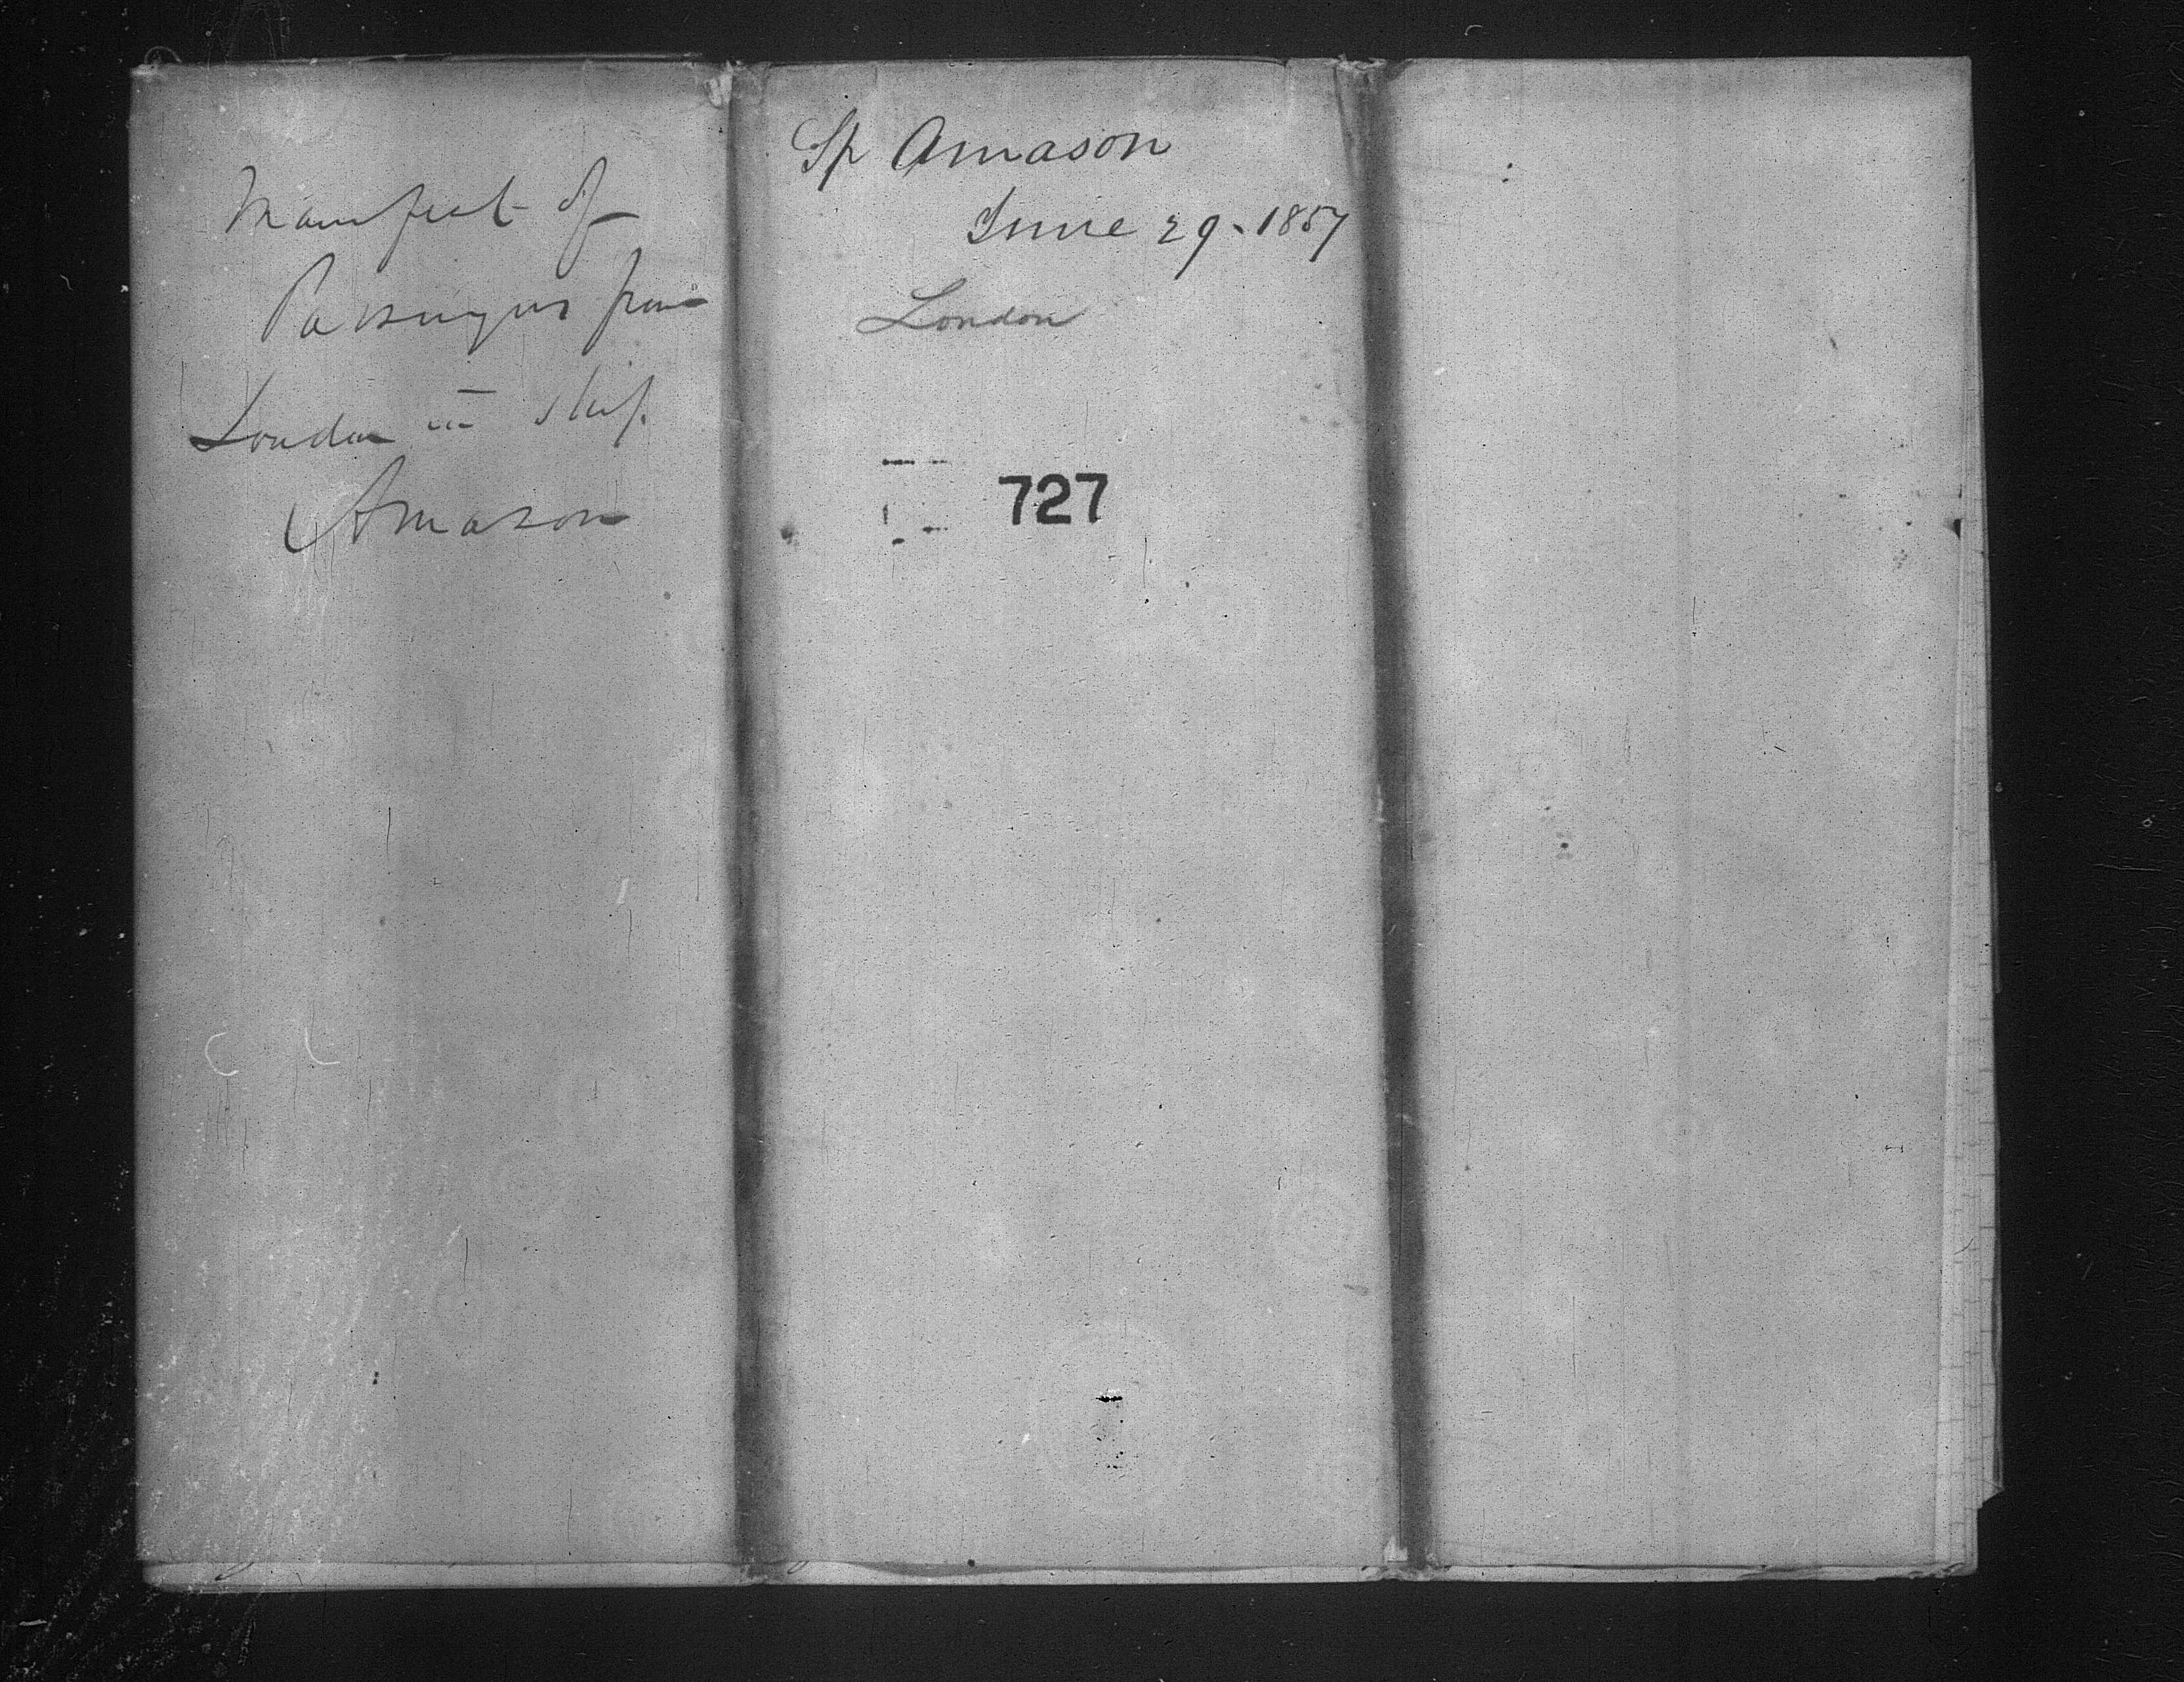 Manifest of
Passengers from
London in ship
Amason
Sp Amason
June 29. 1857
London
727